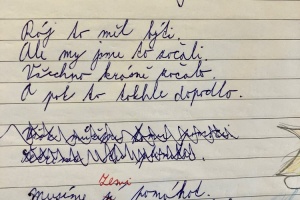 Ráj to měl býti.
Ale my jsme to začali.
Všechno krásně začalo.
A pak to takhle dopadlo.
Zemi
Musíme jí pomáhat.